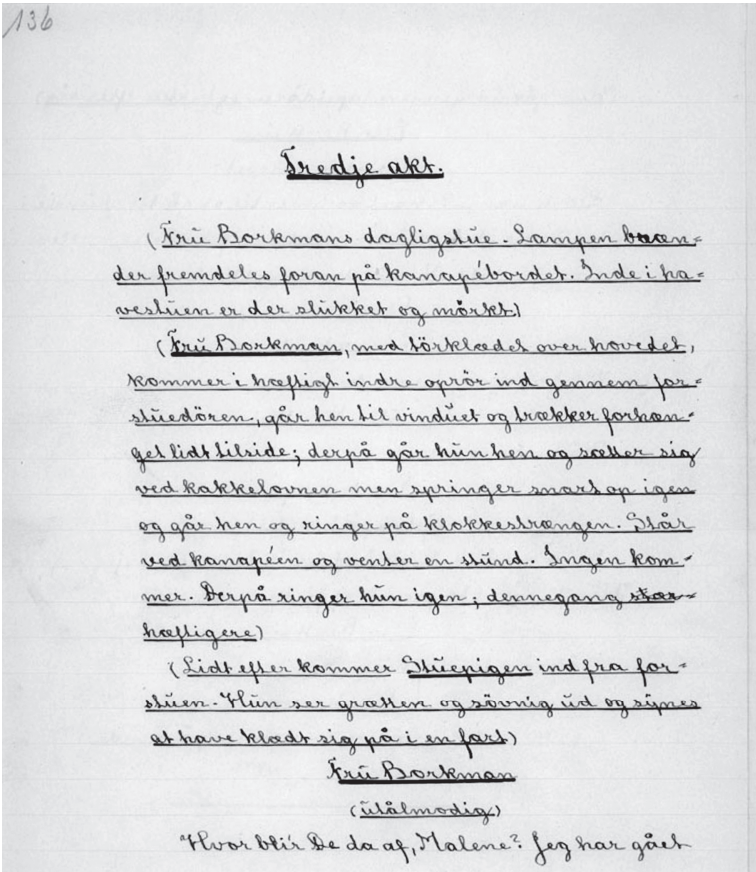 136
Tredje akt.
(Fru Borkmans dagligstue. Lampen bræn=
der fremdeles foran på kanapébordet. Inde i ha=
vestuen er der slukket og mörkt.)
(Fru Borkman, med törklædet over hovedet,
kommer i hæftigt indre oprör ind gennem for=
stuedören, går hen til vinduet og trækker forhæn=
get lidt tilside; derpå går hun hen og sætter sig
ved kakkelovnen men springer snart op igen
og går hen og ringer på klokkestrængen. Står
ved kanapéen og venter en stund. Ingen kom=
mer. Derpå ringer hun igen; dennegang stær
hæftigere)
(Lidt efter kommer Stuepigen ind fra for=
stuen. Hun ser grætten og sövnig ud og synes
at have klædt sig på i en fart)
Fru Borkman
(utålmodig)
Hvor bli'r De da af, Malene? Jeg har gået